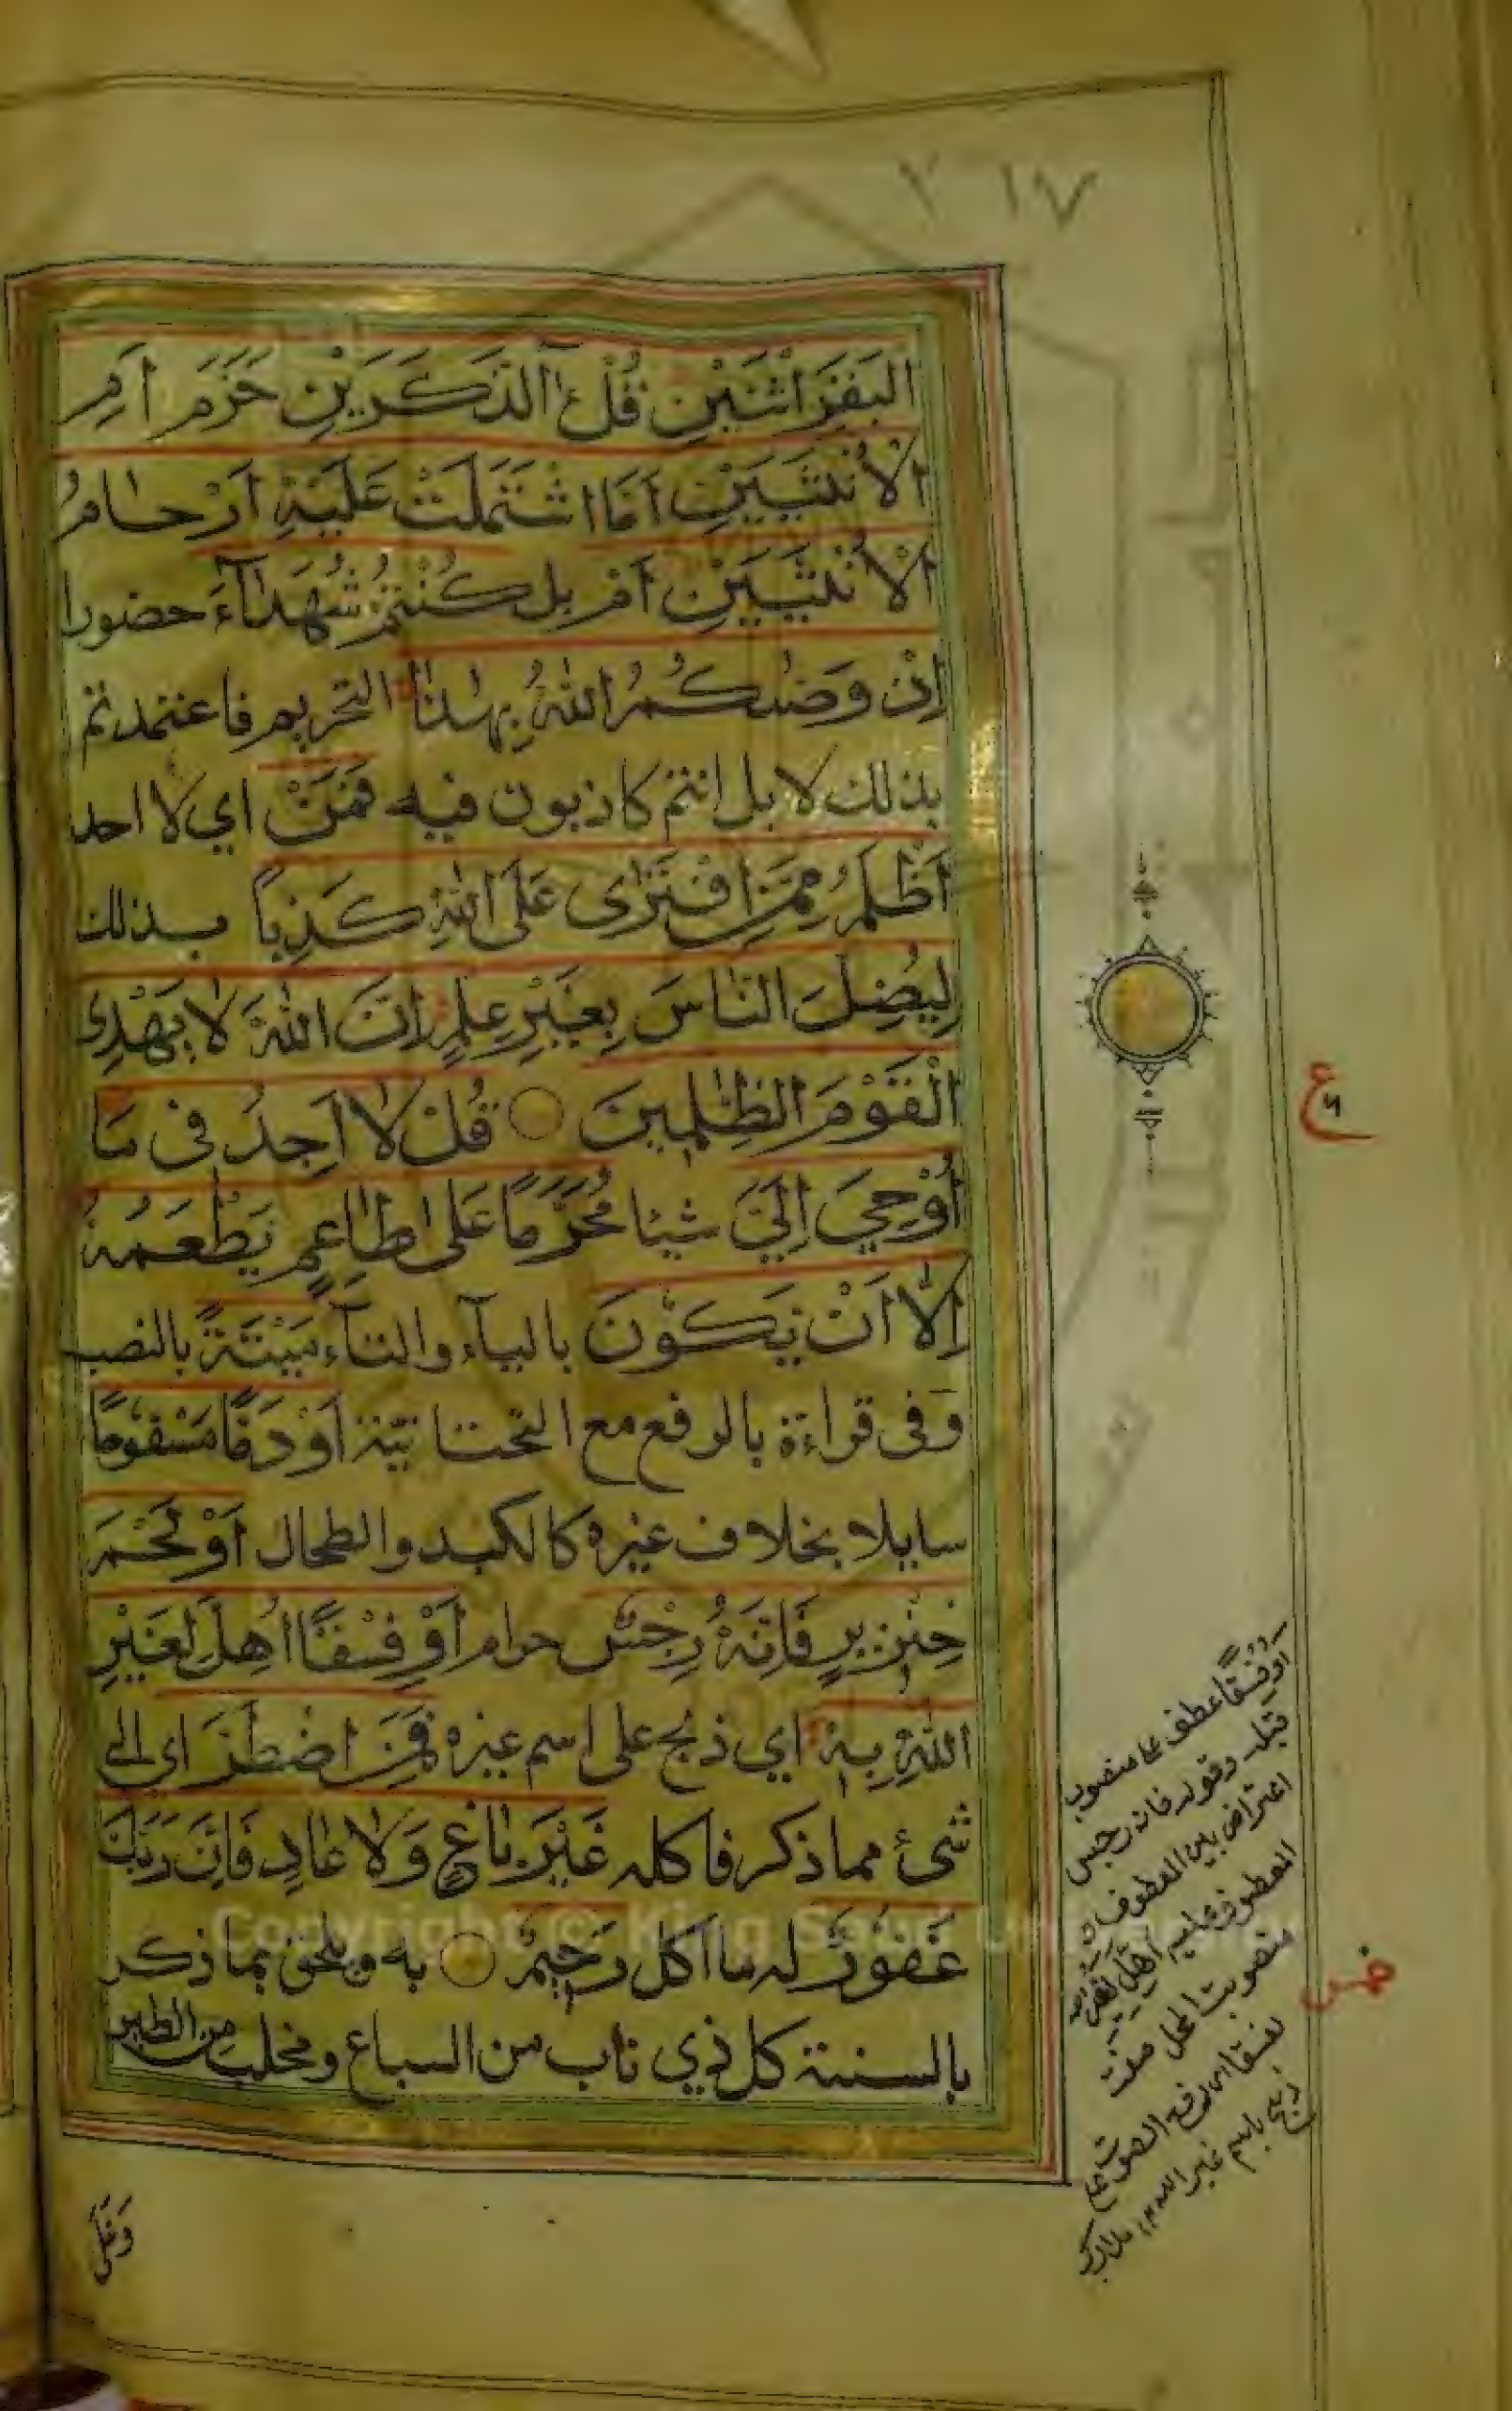 ٢١٧
البَقَرِ اثْنَيْنِ قُلْ ءٰالذَّكَرَيْنِ حَرَّمَ اَمِ
الْاُنْثَيَيْنِ اَمَّا اشْتَمَلَتْ عَلَيْهِ اَرْحَامُ
الْاُنْثَيَيْنِ اَمْ بل كُنْتُمْ شُهَدَآءَ حضورا
اِنْ وَصّٰىكُمُ اللّٰهُ بِهٰذَا التحريم فاعتمدتم
بذلك لا بل انتم كاذبون فيه فَمَنْ اي لا احد
اَظْلَمُ مِمَّنِ افْتَرٰى عَلَى اللّٰهِ كَذِبًا بذلك
لِيُضِلَّ النَّاسَ بِغَيْرِ عِلْمٍ اِنَّ اللّٰهَ لَا يَهْدِى
الْقَوْمَ الظّٰلِمِينَ قُلْ لَا اَجِدُ فِى مَا
اُوْحِيَ اِلَيَّ شيئا مُحَرَّمًا عَلٰى طَاعِمٍ يَطْعَمُهُ
اِلَّا اَنْ يَكُوْنَ بالياء والتآء مَيْتَةً بالنصب
وفى قراءة بالرفع مع التحتانيّة اَوْ دَمًا مَسْفُوحًا
سايلا بخلاف غيره كالكبد والطحال اَوْ لَحْمَ
خِنْزِيرٍ فَاِنَّهُ رِجْسٌ حرام اَوْ فِسْقًا اُهِلَّ لِغَيْرِ
اللّٰهِ بِهِ اي ذبح على اسم غيره فَمَنِ اضْطُرَّ اي الى
شئ مما ذكر فاكله غَيْرَ بَاغٍ وَلَا عَادٍ فَاِنَّ رَبَّكَ
غَفُوْرٌ له ما اكل رَحِيْمٌ به ويلحق بما ذكر
بالسنة كل ذي ناب من السباع ومخلب من الطير
وَعَلَى
ع ٦
خمس
اَوْ فِسْقًا عطف على منصوب
قبله وقوله فانه رجس
اعتراض بين المعطوف و
المعطوف عليه اُهِلَّ لِغَيْرِ الله
منصوبة المحل صفت
لفسقا اى رفع الصوت على
ذبحه باسم غير الله مدارك
Copyright © King Saud University